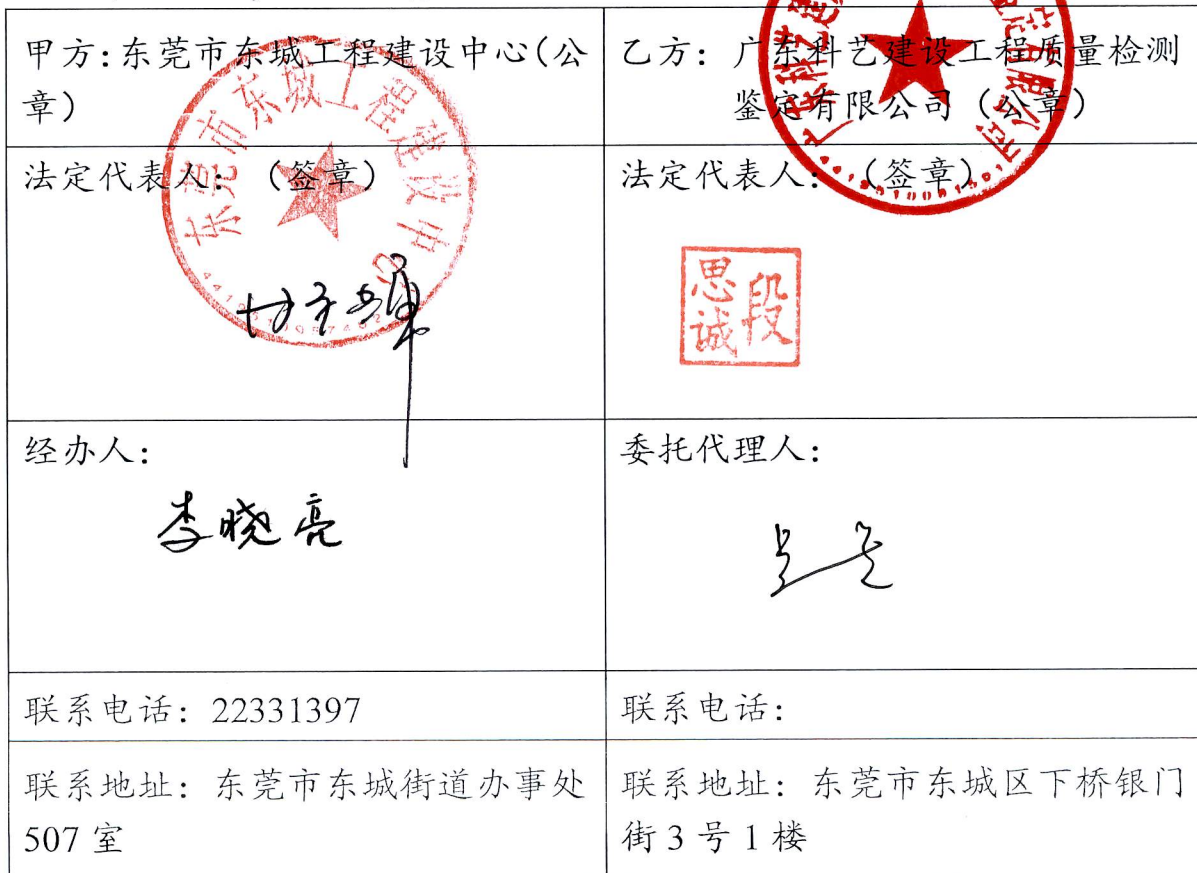 甲方:东莞市东城工程建设中心(公
章)
乙方：广东科艺建设工程质量检测
鉴定有限公司（公章）
东莞市东城工程建设中心
法定代表人：（签章）
法定代表人：（签章）
段思诚
经办人：
李晓亮
委托代理人：
联系电话：22331397
联系电话：
联系地址：东莞市东城街道办事处
507 室
联系地址：东莞市东城区下桥银门
街 3 号 1 楼